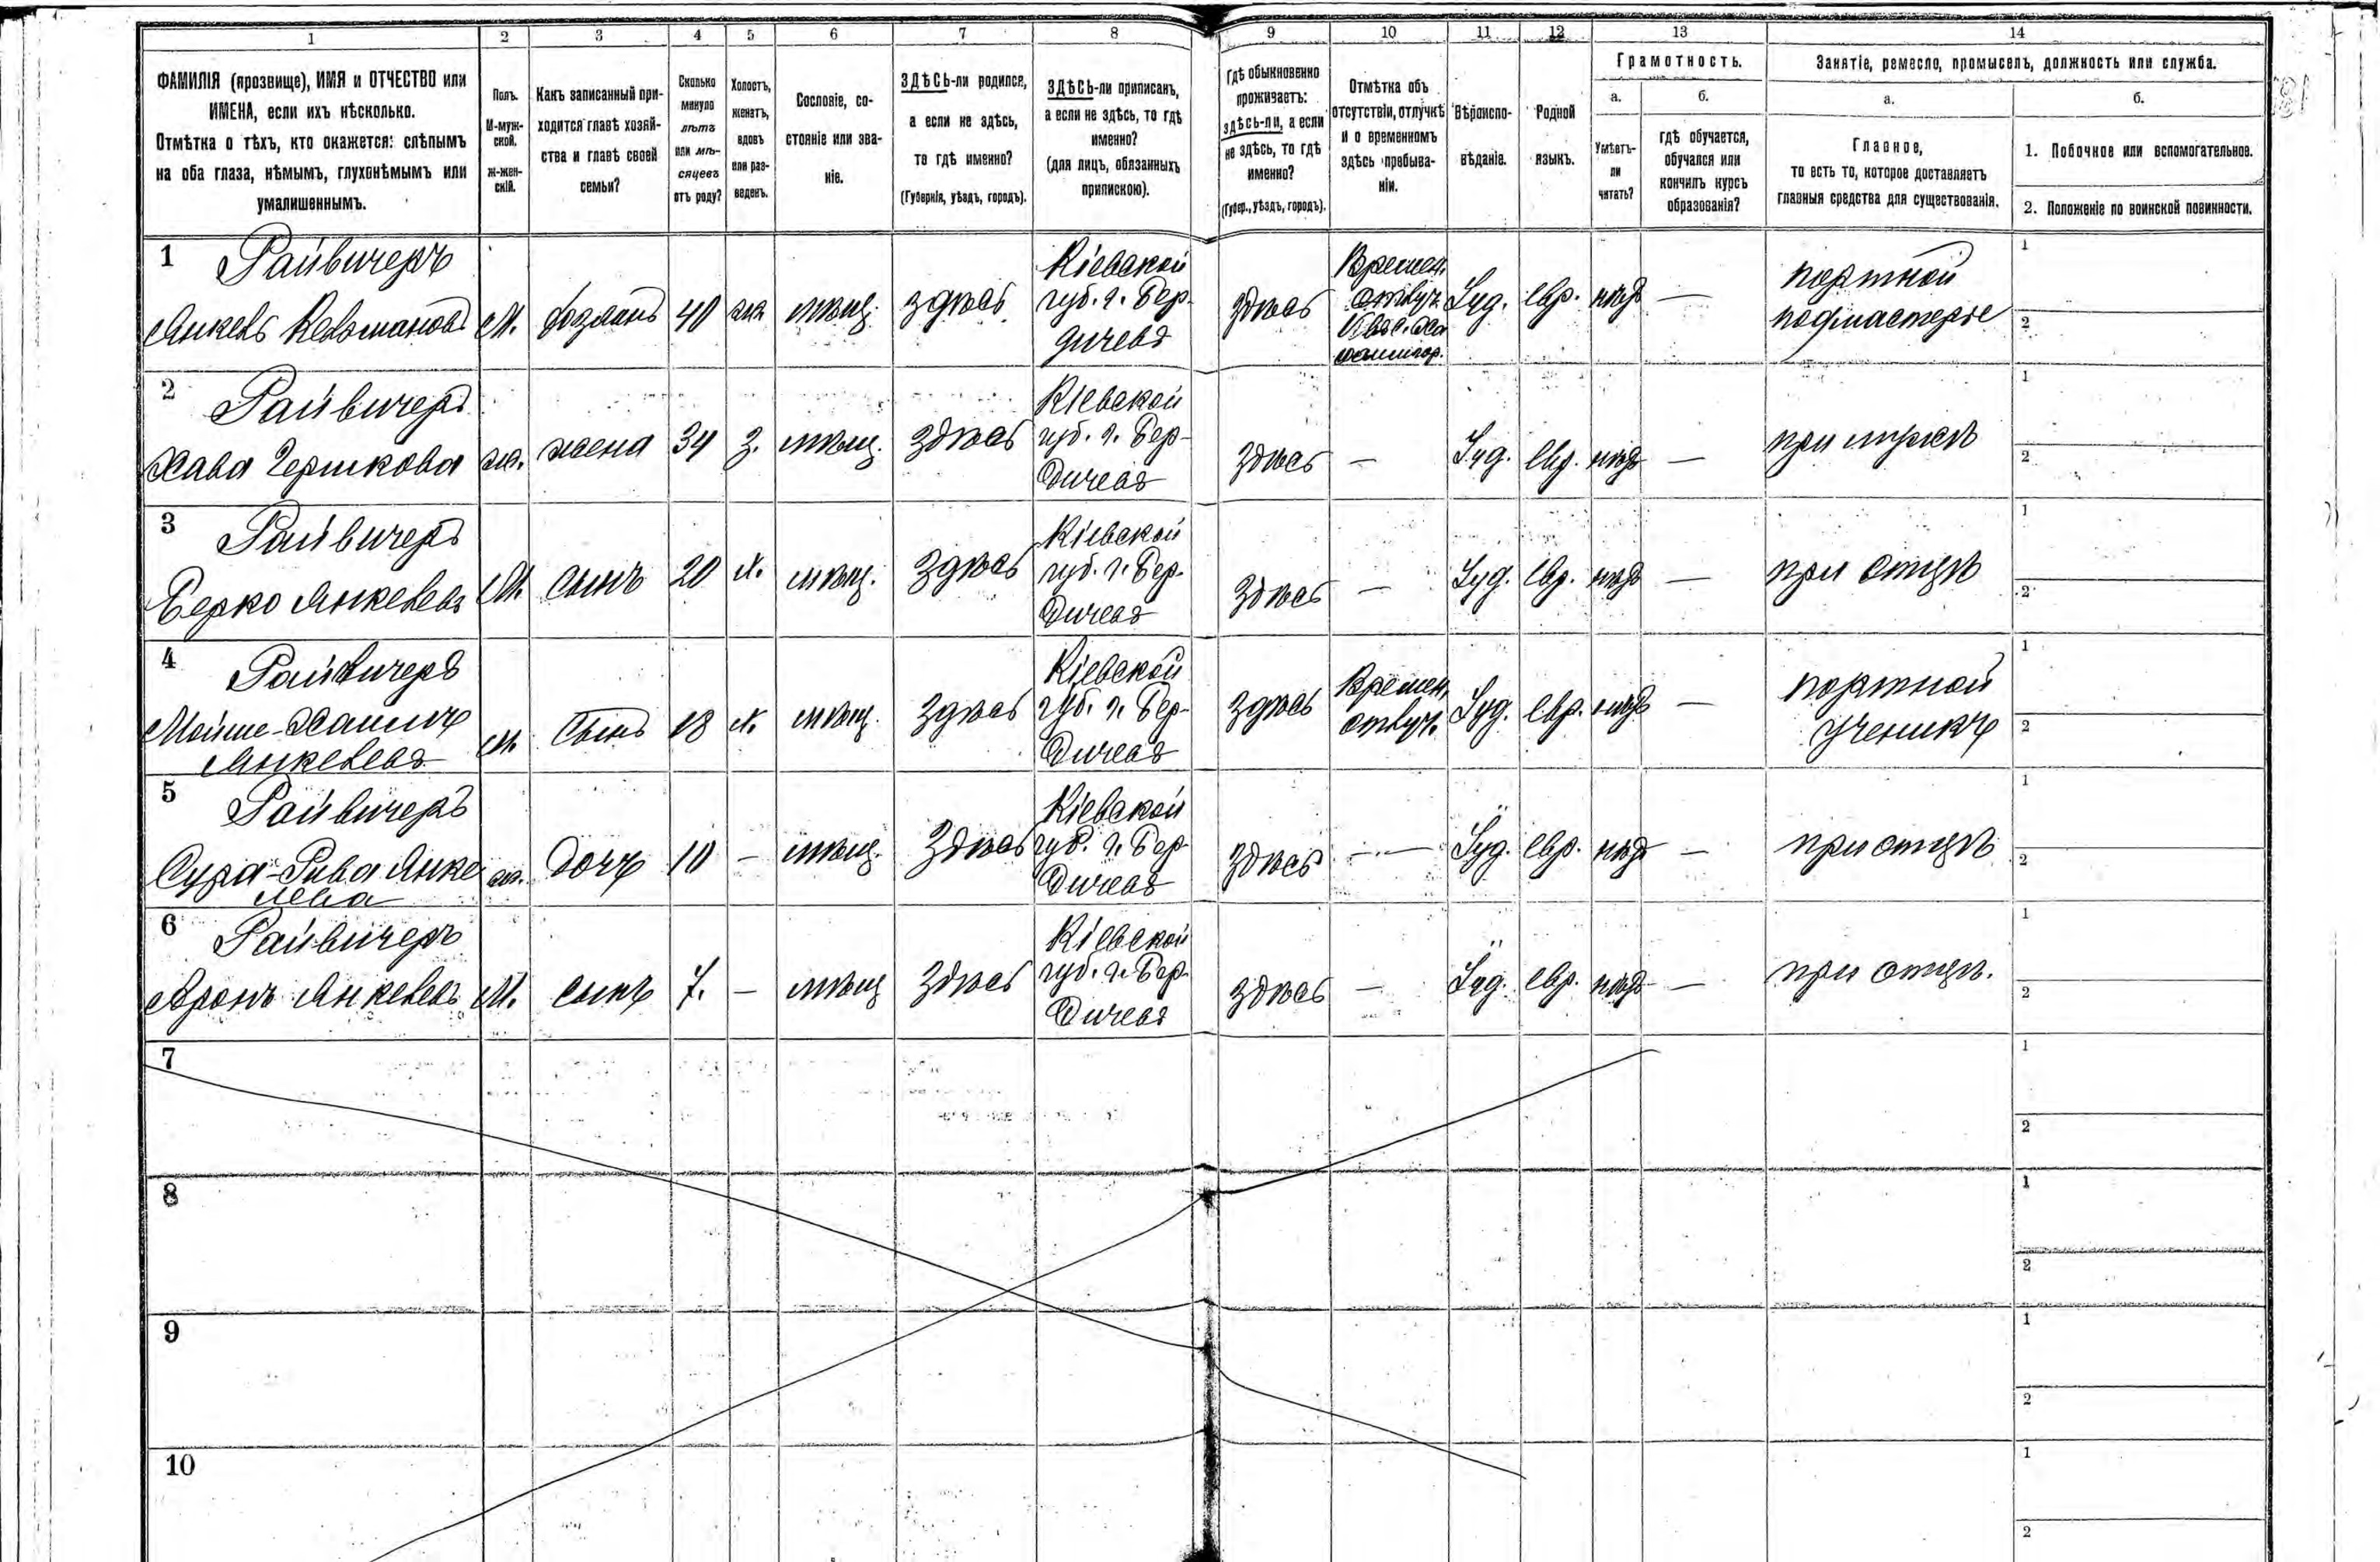 1 2 3 4 5 6 7 8 9 10 11 12 13 14
ФАМИЛІЯ (прозвище), ИМЯ и ОТЧЕСТВО или
ИМЕНА, если ихъ нѣсколько.
Отмѣтка о тѣхъ, кто окажется: слѣпымъ
на оба глаза, нѣмымъ, глухонѣмымъ или
умалишеннымъ.
Полъ.
М-муж-
ской.
Ж-жен-
скій.
Какъ записанный при-
ходится главѣ хозяй-
ства и главѣ своей
семьи?
Сколько
минуло
лѣтъ
или мѣ-
сяцевъ
отъ роду?
Холостъ,
женатъ,
вдовъ
или раз-
веденъ.
Сословіе, со-
стояніе или зва-
ніе.
ЗДѢСЬ-ли родился,
а если не здѣсь,
то гдѣ именно?
(Губернія, уѣздъ, городъ).
ЗДѢСЬ-ли приписанъ,
а если не здѣсь, то гдѣ
именно?
(для лицъ, обязанныхъ
припискою).
Гдѣ обыкновенно
проживаетъ:
здѣсь-ли, а если
не здѣсь, то гдѣ
именно?
(Губер., уѣздъ, городъ).
Отмѣтка объ
отсутствіи, отлучкѣ
и о временномъ
здѣсь пребыва-
ніи.
Вѣроиспо-
вѣданіе.
Родной
языкъ.
Грамотность.
а.
Умѣетъ-
ли
читать?
б.
гдѣ обучается,
обучался или
кончилъ курсъ
образованія?
Занятіе, ремесло, промыселъ, должность или служба.
а.
Главное,
то есть то, которое доставляетъ
главныя средства для существованія.
б.
1. Побочное или вспомогательное.
2. Положеніе по воинской повинности.
1 Райвичеръ
Янкель
М.
хозяинъ
40
ж.
мѣщ.
здѣсь
Кіевской
губ. г. Бер-
дичевъ
здѣсь
Времен.
отлуч.
Іуд.
евр.
нѣтъ
—
портной
подмастерье
1
2
2 Райвичеръ
Хава Гершкова
ж.
жена
34
з.
мѣщ.
здѣсь
Кіевской
губ. г. Бер-
дичевъ
здѣсь
—
Іуд.
евр.
нѣтъ
—
при мужѣ
1
2
3 Райвичеръ
Берко Янкелевъ
М.
сынъ
20
х.
мѣщ.
здѣсь
Кіевской
губ. г. Бер-
дичевъ
здѣсь
—
Іуд.
евр.
нѣтъ
—
при отцѣ
1
2
4 Райвичеръ
Мойше-Хаимъ
Янкелевъ
М.
сынъ
18
х.
мѣщ.
здѣсь
Кіевской
губ. г. Бер-
дичевъ
здѣсь
Времен.
отлуч.
Іуд.
евр.
нѣтъ
—
портной
ученикъ
1
2
5 Райвичеръ
Сура-Рива Янке
лева
ж.
дочь
10
—
мѣщ.
здѣсь
Кіевской
губ. г. Бер-
дичевъ
здѣсь
—
Іуд.
евр.
нѣтъ
—
при отцѣ
1
2
6 Райвичеръ
Аронъ Янкелевъ
М.
сынъ
7.
—
мѣщ
здѣсь
Кіевской
губ. г. Бер-
дичевъ
здѣсь
—
Іуд.
евр.
нѣтъ
—
при отцѣ.
1
2
7
1
2
8
1
2
9
1
2
10
1
2